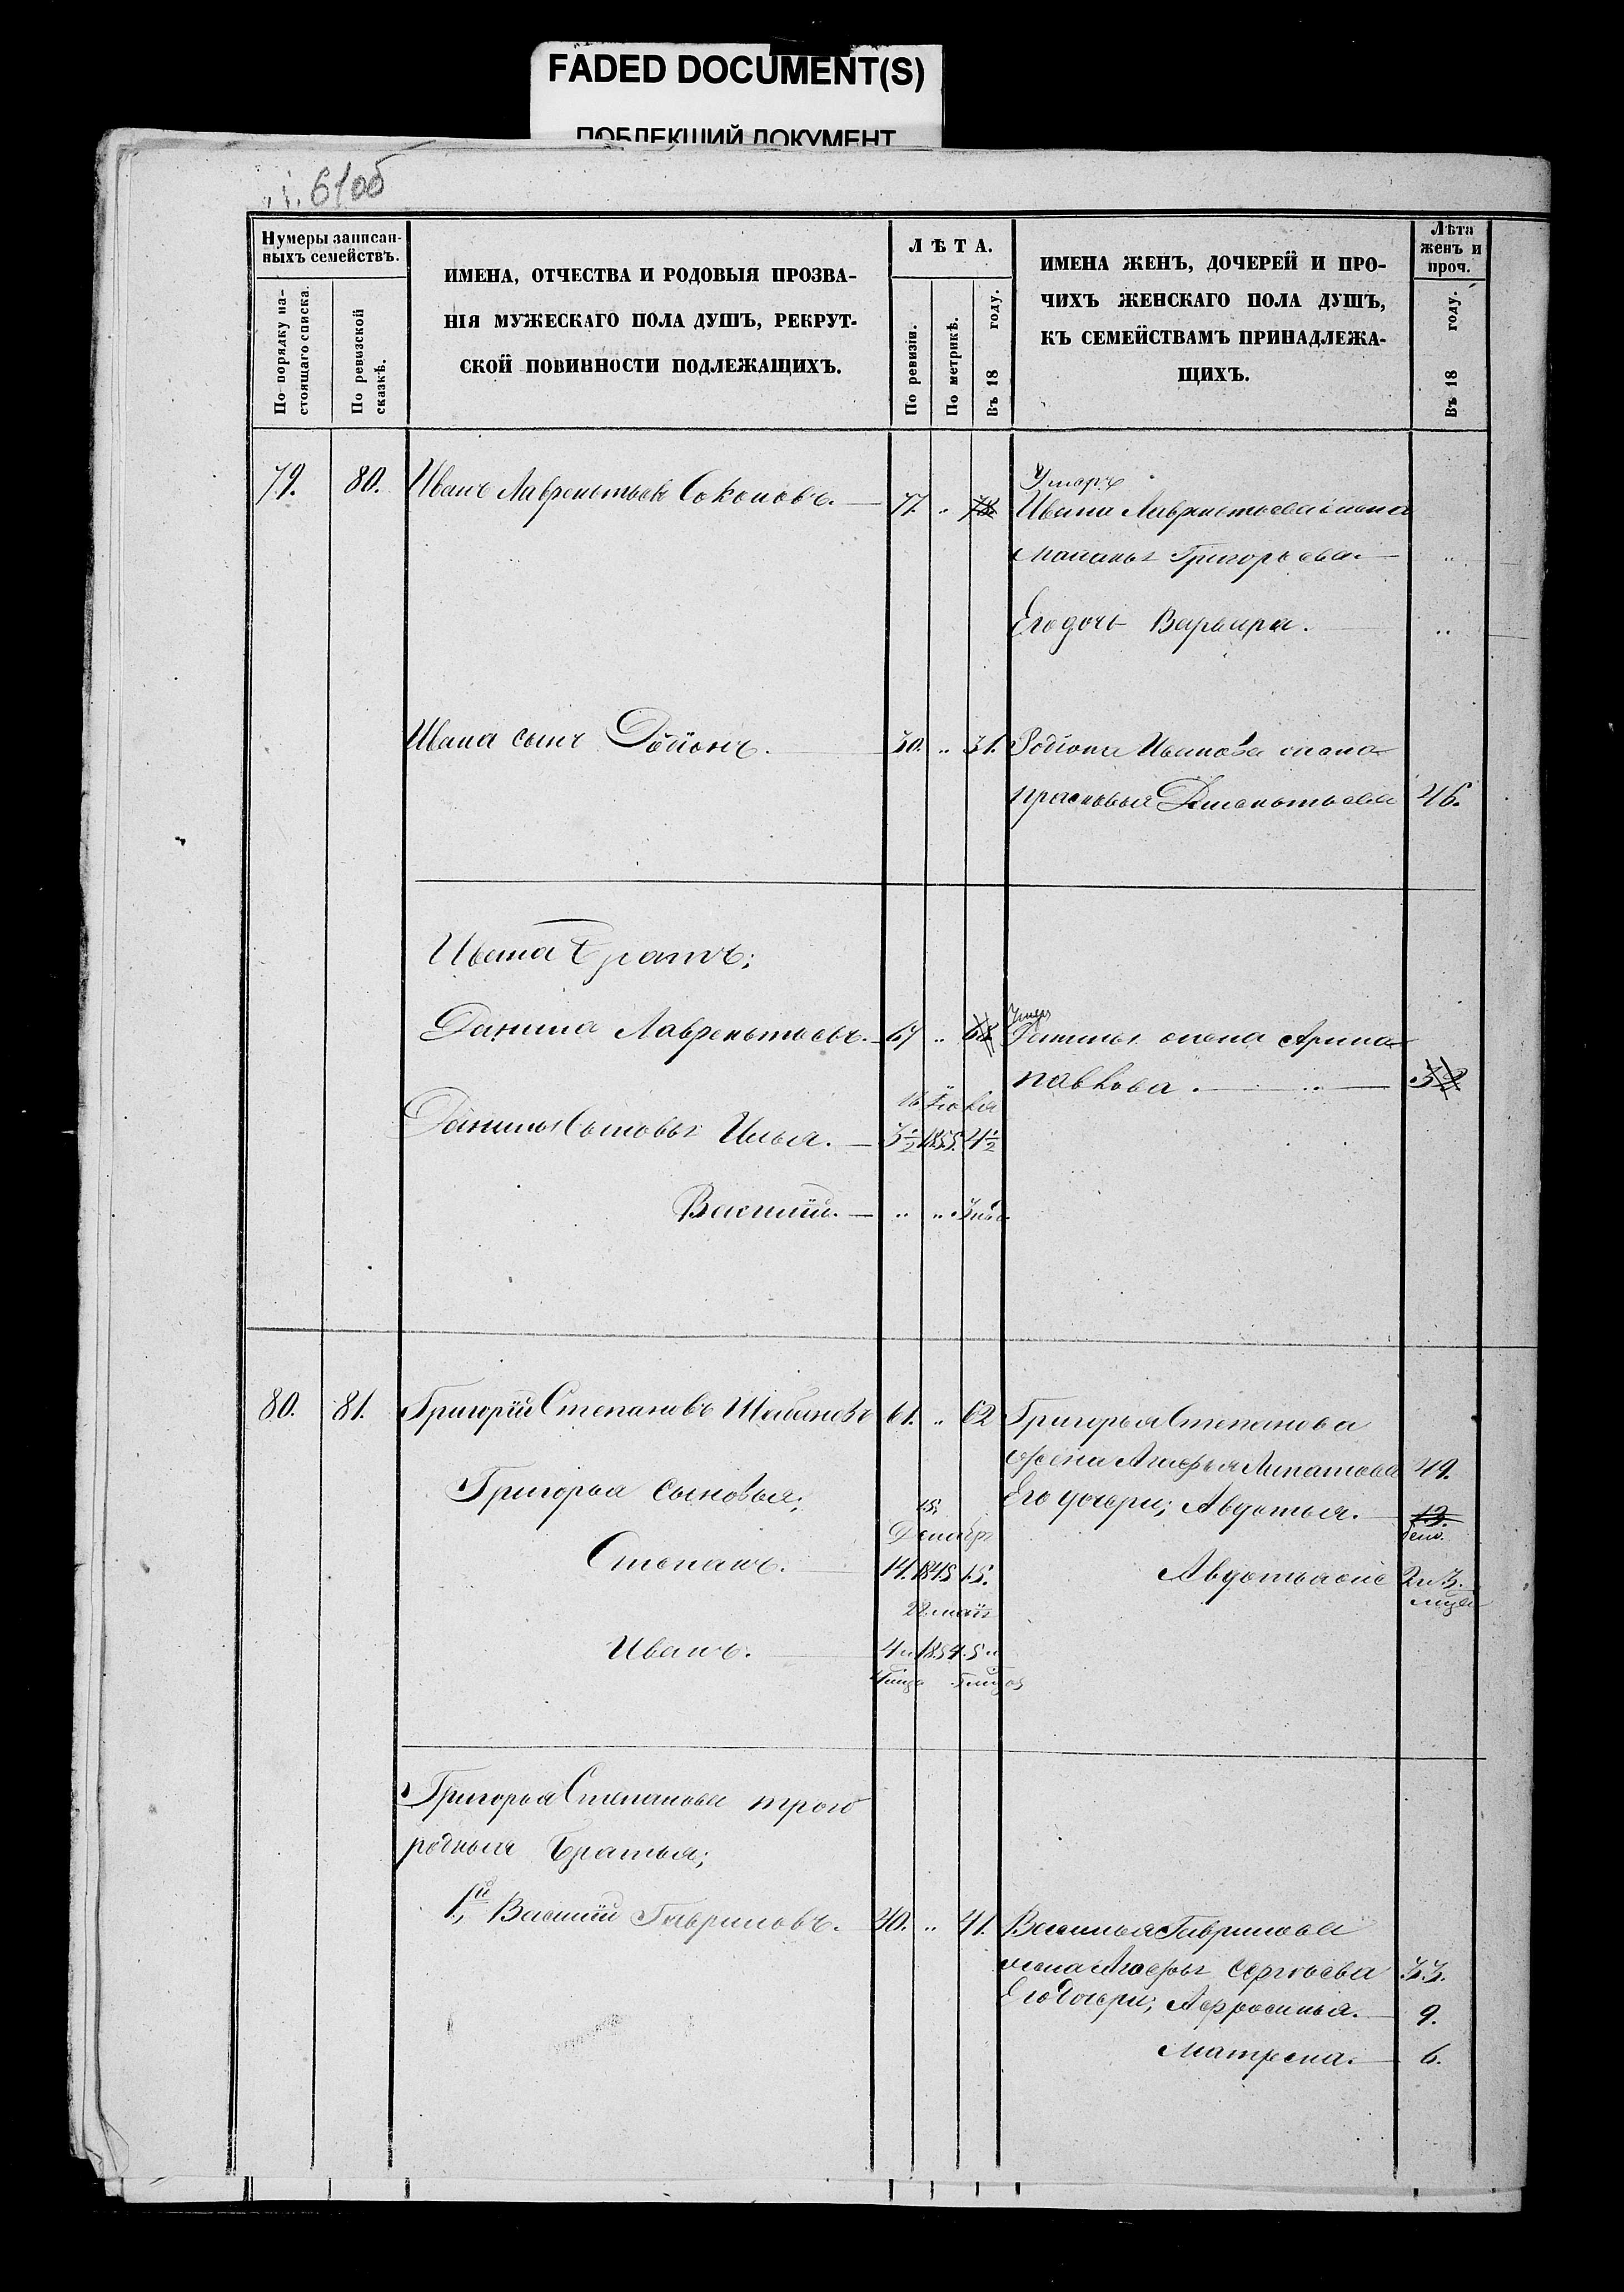 FADED DOCUMENT(S)
ПОБЛЕКШИЙ ДОКУМЕНТ
61об
Нумеры записан-
ныхъ семействъ.
По порядку на-
стоящаго списка.
По ревизской
сказкѣ.
ИМЕНА, ОТЧЕСТВА И РОДОВЫЯ ПРОЗВА-
НІЯ МУЖЕСКАГО ПОЛА ДУШЪ, РЕКРУТ-
СКОЙ ПОВИННОСТИ ПОДЛЕЖАЩИХЪ.
ЛѢТА.
По ревизіи.
По метрикѣ.
Въ 18 году.
ИМЕНА ЖЕНЪ, ДОЧЕРЕЙ И ПРО-
ЧИХЪ ЖЕНСКАГО ПОЛА ДУШЪ,
КЪ СЕМЕЙСТВАМЪ ПРИНАДЛЕЖА-
ЩИХЪ.
Лѣта
женъ и
проч.
Въ 18 году.
Умеръ
79. 80. Иванъ Лаврентьевъ Соколовъ. 77. " 78 Ивана Лаврентьева жена
Маланья Григорьева "
Его дочь Варвара. "
Ивана сынъ Родіонъ. 30. " 31. Родіона Иванова жена
Прасковья 46.
Ивана братъ;
Умер
Данила Лаврентьевъ. 67 " 68 Данилы жена Арина
Павлова. 52
16 Іюля
Данилы сыновья Илья. 3½ 1855. 4½
Василій. " "
80. 81. Григорій Степановъ 61. " 62 Григорья Степанова
жена Липатова 49.
Григорья сыновья; Его дочери; Авдотья. 13.
15. Декабр
Степанъ. 14. 1843 15. Авдотья 2 и 3. мцa
22 маія
Иванъ. 4 и 1854. 5 и
Григорья Степанова трою
родныя братья;
1й, Василій Гавриловъ. 40. " 41. Василья Гаврилова
жена Сергѣева 33.
Его дочери; Афросинья. 9.
Матрена. 6.